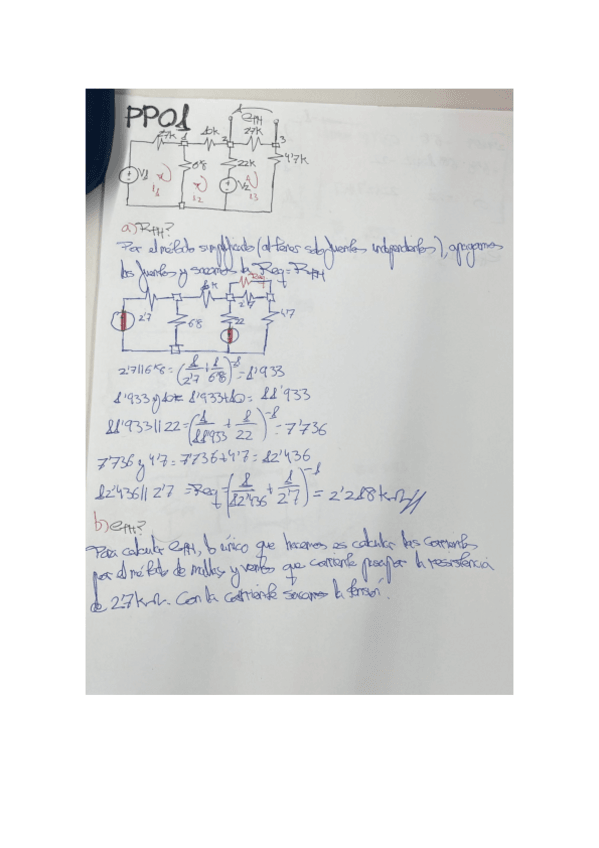 PPO1
eTH
2'7k 1 10k 2 27k 3
6'8 22k 4'7k
V1 V2
i1 i2 i3
a) RTH?
Por el método simplificado (al tener solo fuentes independientes), apagamos
las fuentes y sacamos la Req = RTH
10k Req
2'7 6'8 22 2'7 4'7
2'7||6'8 = (1/2'7 + 1/6'8)^-1 = 1'933
1'933 y 10k = 1'933+10 = 11'933
11'933||22 = (1/11'933 + 1/22)^-1 = 7'736
7'736 y 4'7 = 7'736+4'7 = 12'436
12'436||2'7 = Req = (1/12'436 + 1/2'7)^-1 = 2'218kΩ//
b) eTH?
Para calcular eTH, lo único que hacemos es calcular las corrientes
por el método de mallas, y vemos que corriente pasa por la resistencia
de 27kΩ. Con la corriente sacamos la tensión.